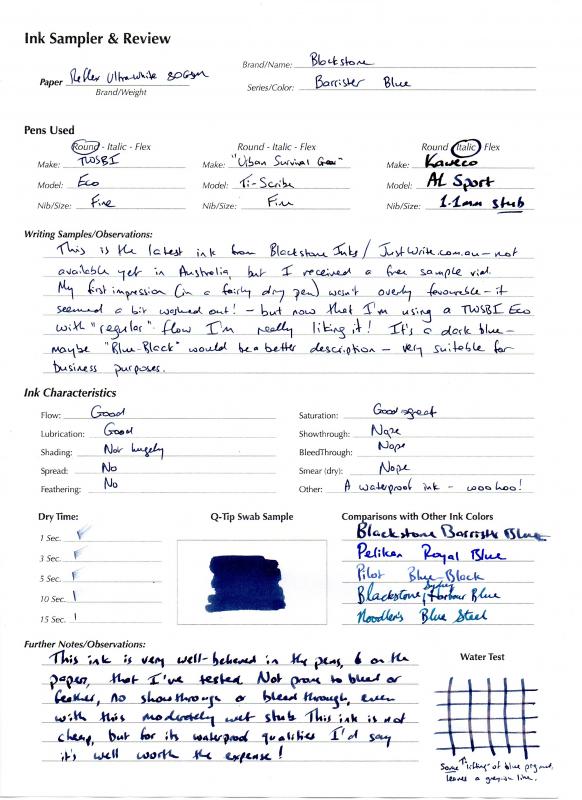 Ink Sampler & Review
Brand/Name: Blackstone
Paper Reflex Ultrawhite 80Gsm
Brand/Weight
Series/Color: Barrister Blue
Pens Used
Round - Italic - Flex
Round - Italic - Flex
Round - Italic - Flex
Make: TWSBI
Make: "Urban Survival Gear"
Make: Kaweco
Model: Eco
Model: Ti-Scribe
Model: AL Sport
Nib/Size: Fine
Nib/Size: Fine
Nib/Size: 1.1mm stub
Writing Samples/Observations:
This is the latest ink from Blackstone Inks/JustWrite.com.au - not
available yet in Australia, but I received a free sample vial.
My first impression (in a fairly dry pen) wasn't overly favourable - it
seemed a bit washed out! - but now that I'm using a TWSBI Eco
with "regular" flow I'm really liking it! It's a dark blue -
maybe "Blue-Black" would be a better description - very suitable for
business purposes.
Ink Characteristics
Flow: Good
Lubrication: Good
Shading: Not hugely
Spread: No
Feathering: No
Saturation: Good
Showthrough: Nope
BleedThrough: Nope
Smear (dry): Nope
Other: A waterproof ink - woohoo!
Dry Time:
1 Sec.
3 Sec.
5 Sec.
10 Sec.
15 Sec.
Q-Tip Swab Sample
Comparisons with Other Ink Colors
Blackstone Barrister Blue
Pelikan Royal Blue
Pilot Blue-Black
Blackstone Sydney Harbour Blue
Noodler's Blue Steel
Further Notes/Observations:
This ink is very well-behaved in the pens, & on the
paper, that I've tested. Not prone to bleed or
feather, no showthrough or bleedthrough, even
with this moderately wet stub. This ink is not
cheap, but for its waterproof qualities I'd say
it's well worth the expense!
Water Test
Some "lifting" of blue pigment,
leaves a greyish line.